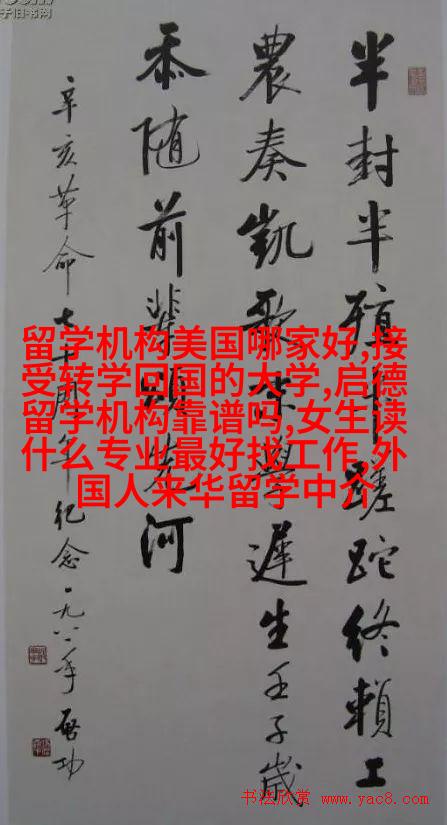 半封半殖半蹉跎终賴工
農奏凱歌末學遲生壬子歲
忝随前輩頌先河
辛亥革命七十周年纪念一九八一年 啓功
留学机构美国哪家好,接
受转学回国的大学,启德
留学机构靠谱吗,女生读
什么专业最好找工作,外
国人来华留学中介
书法欣赏 www.yac8.com